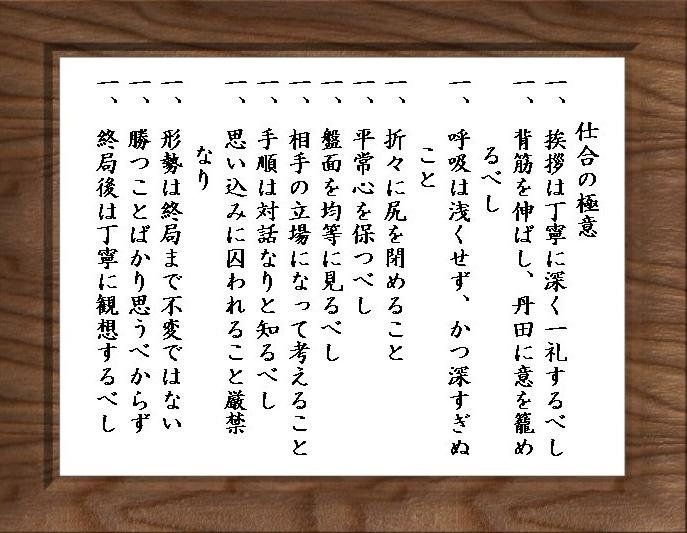 仕合の極意
一、挨拶は丁寧に深く一礼するべし
一、背筋を伸ばし、丹田に意を籠め
るべし
一、呼吸は浅くせず、かつ深すぎぬ
こと
一、折々に尻を閉めること
一、平常心を保つべし
一、盤面を均等に見るべし
一、相手の立場になって考えること
一、手順は対話なりと知るべし
一、思い込みに囚われること厳禁
なり
一、形勢は終局まで不変ではない
一、勝つことばかり思うべからず
一、終局後は丁寧に観想するべし